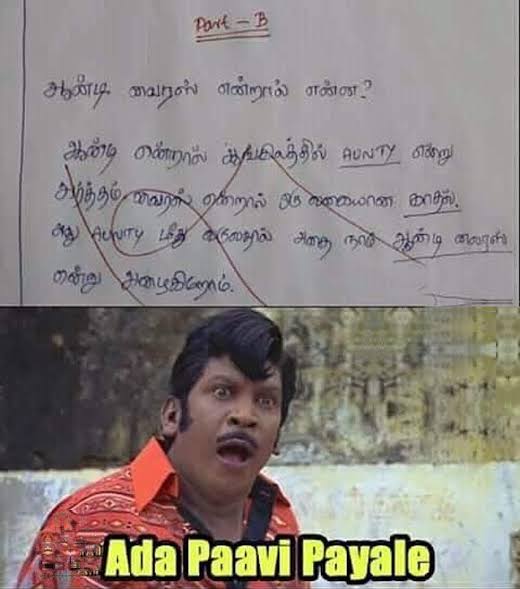 Part - B
ஆண்டி வைரஸ் என்றால் என்ன?
ஆண்டி என்றால் ஆங்கிலத்தில் AUNTY என்று
அர்த்தம். வைரஸ் என்றால் ஒரு வகையான காதல்.
அது AUNTY மீது வருவதால் அதை நாம் ஆண்டி வைரஸ்
என்று அழைகிறோம்.
Ada Paavi Payale